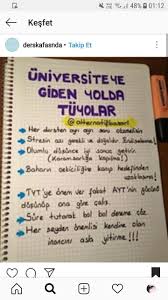 %48 01:12
Keşfet
derskafasnda • Takip Et
ÜNİVERSİTEYE
GİDEN YOLDA
TÜYOLAR
Her dersten ayrı ayrı soru çözmelisin
Stresin azı gerekli ve doğaldır. Sınırlandırma!
Olumlu düşünce iyi sonuç getirir.
(Karamsarlığa kapılma!)
Baharın çekiciliğine kanıp hedefinden
TYT'ye önem ver fakat AYT'nin gücünü
düşünüp ona göre çalış.
Süre tutarak bol bol deneme çöz
Her şeyden önemlisi kendine olan
inancını asla yitirme!!!